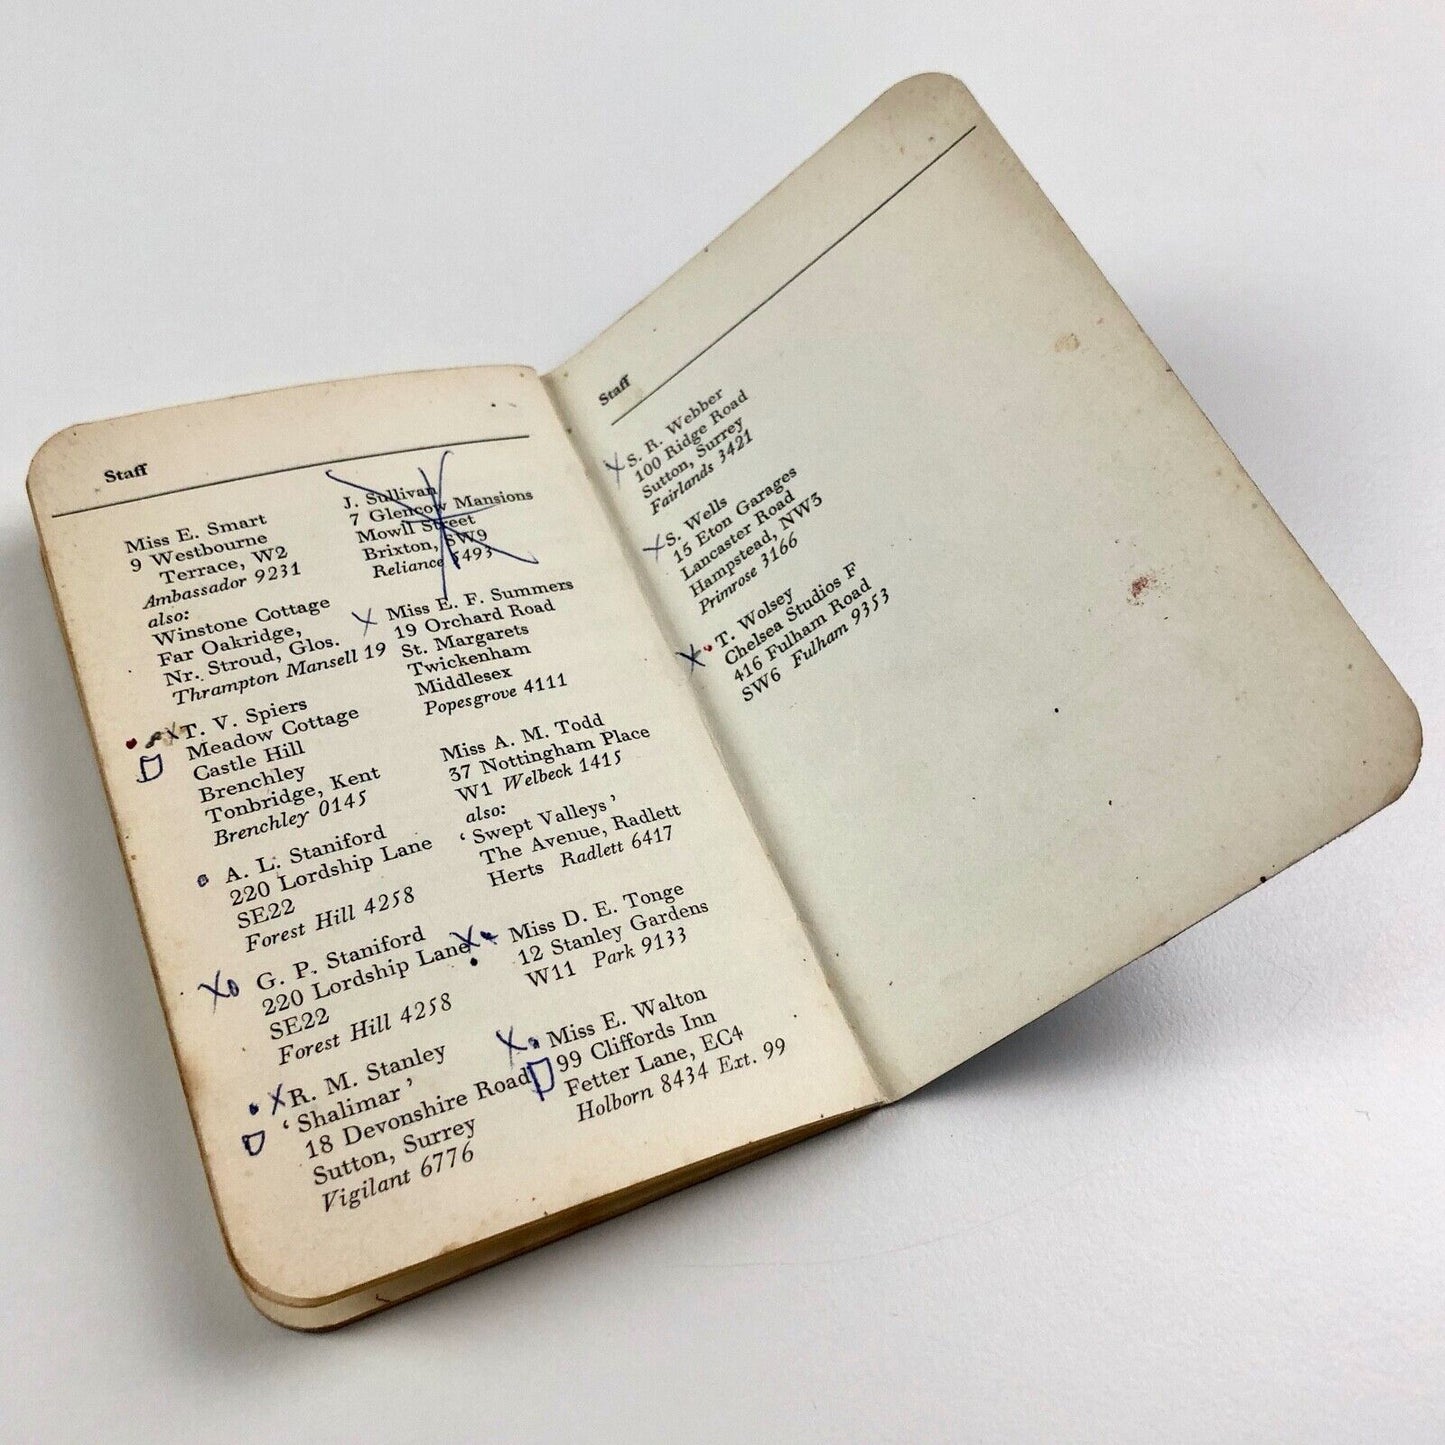 Staff
Miss E. Smart
9 Westbourne
Terrace, W2
Ambassador 9231
also:
Winstone Cottage
Far Oakridge,
Nr. Stroud, Glos.
Thrampton Mansell 19
X T. V. Spiers
Meadow Cottage
Castle Hill
Brenchley
Tonbridge, Kent
Brenchley 0145
A. L. Staniford
220 Lordship Lane
SE22
Forest Hill 4258
X G. P. Staniford
220 Lordship Lane
SE22
Forest Hill 4258
X R. M. Stanley
‘Shalimar’
18 Devonshire Road
Sutton, Surrey
Vigilant 6776
J. Sullivan
7 Glencow Mansions
Mowll Street
Brixton, SW9
Reliance 5493
X Miss E. F. Summers
19 Orchard Road
St. Margarets
Twickenham
Middlesex
Popesgrove 4111
Miss A. M. Todd
37 Nottingham Place
W1 Welbeck 1415
also:
‘Swept Valleys’
The Avenue, Radlett
Herts Radlett 6417
X Miss D. E. Tonge
12 Stanley Gardens
W11 Park 9133
X Miss E. Walton
99 Cliffords Inn
Fetter Lane, EC4
Holborn 8434 Ext. 99
Staff
X S. R. Webber
100 Ridge Road
Sutton, Surrey
Fairlands 3421
X S. Wells
15 Eton Garages
Lancaster Road
Hampstead, NW3
Primrose 3166
X T. Wolsey
Chelsea Studios F
416 Fulham Road
SW6 Fulham 9353